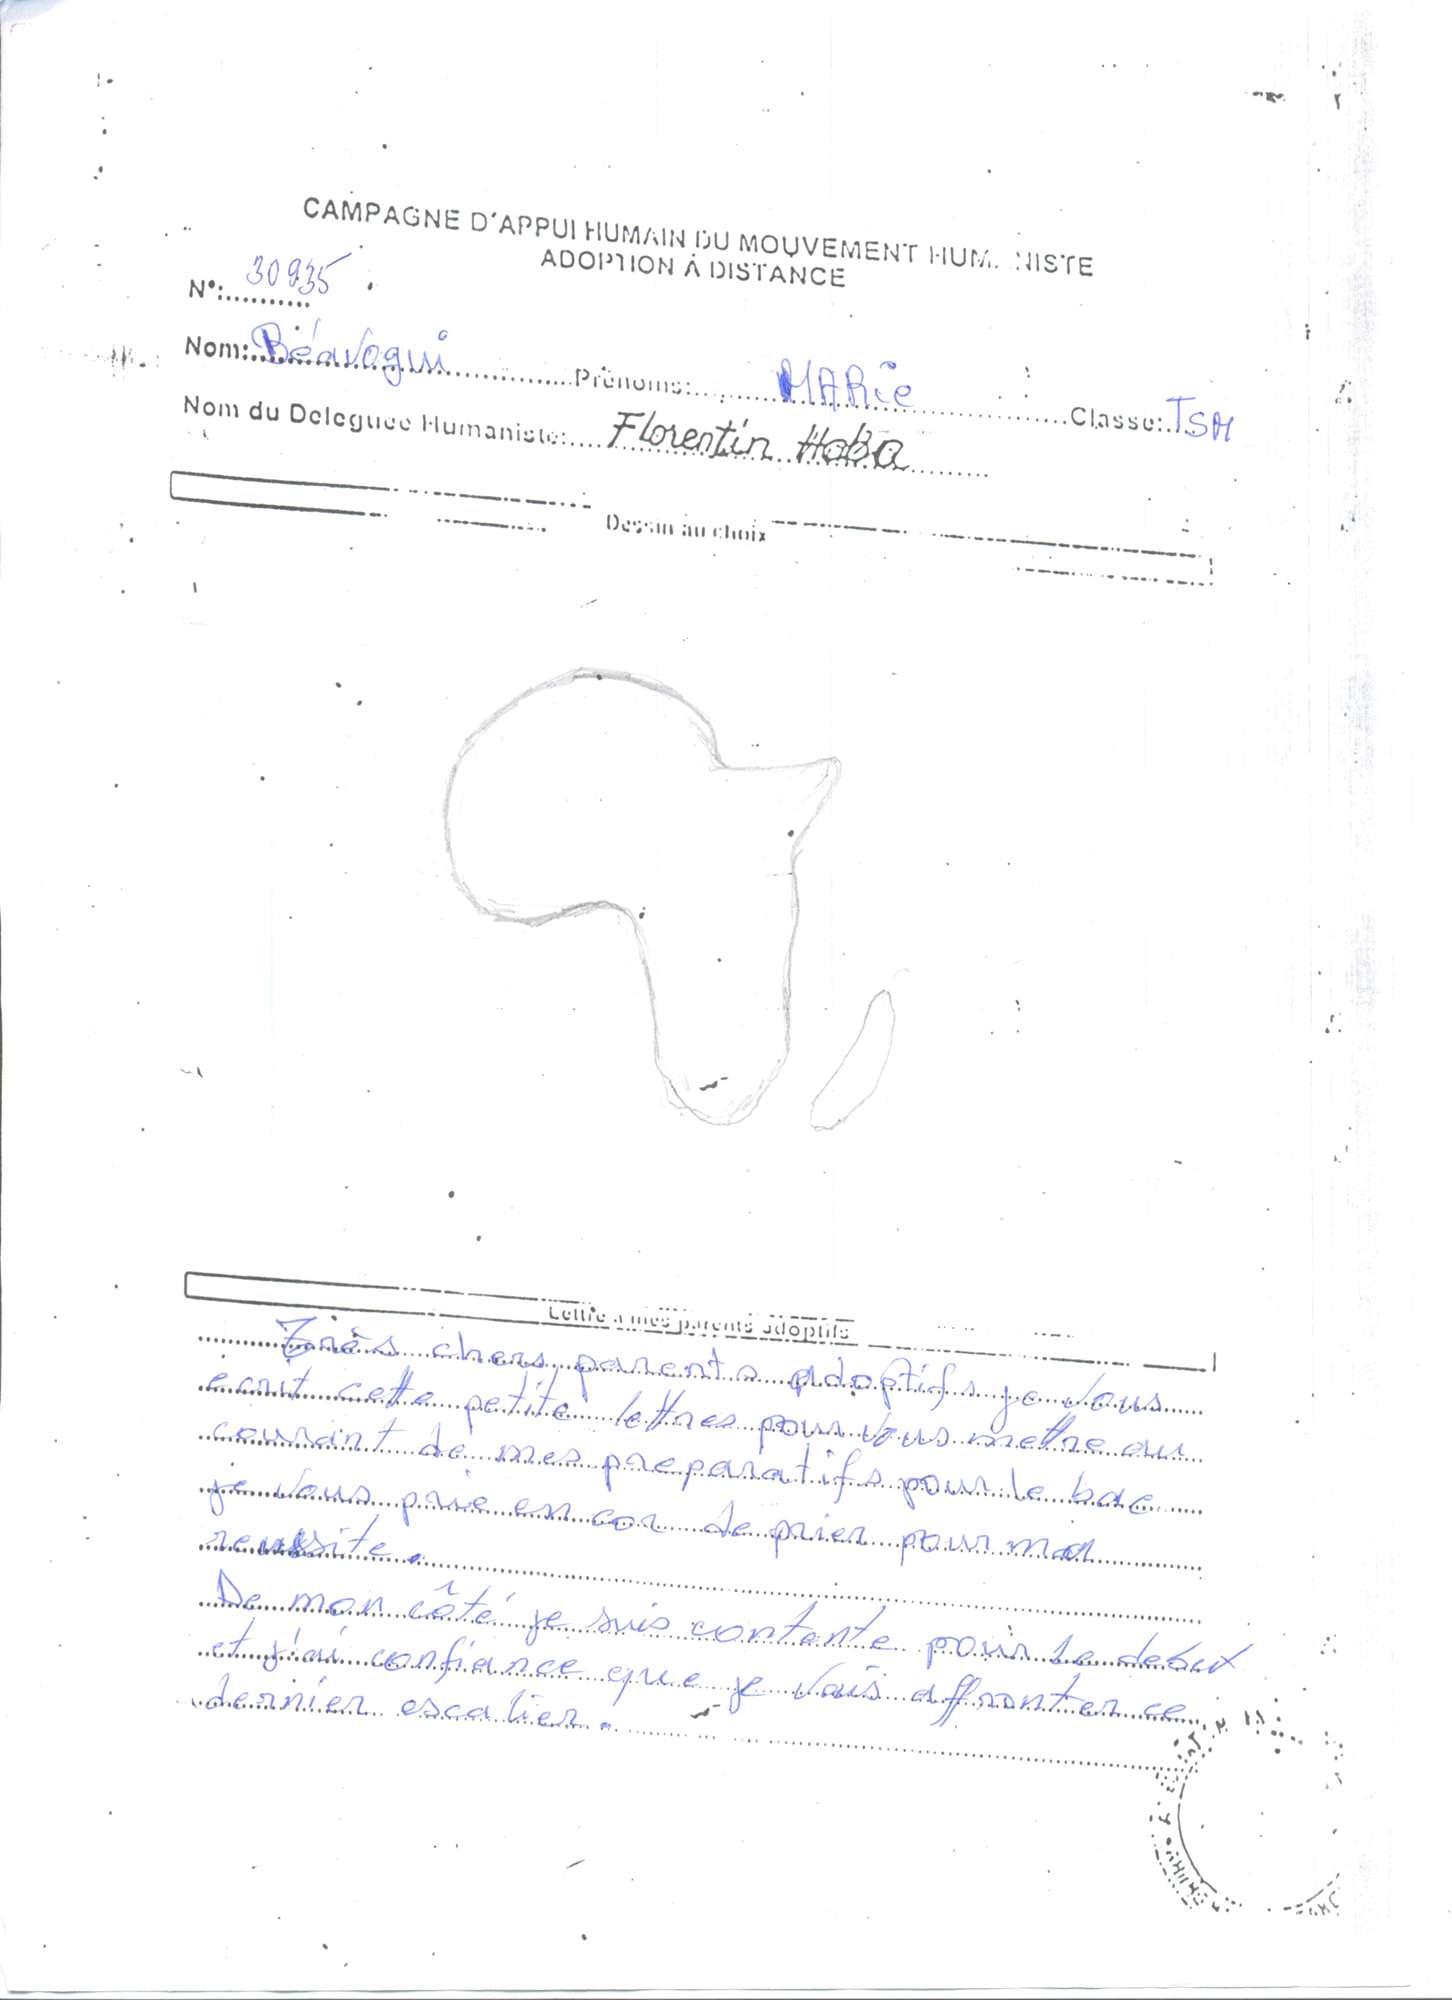 CAMPAGNE D'APPUI HUMAIN DU MOUVEMENT HUMANISTE
ADOPTION À DISTANCE
N°: 30935
Nom: Béavogui Prénoms: MARie Classe: TSM
Nom du Deleguée Humaniste: Florentin Haba
Dessin au choix
Lettre a mes parents adoptifs
Très chers parents adoptifs je vous
ecrit cette petite lettres pour vous mettre au
courant de mes preparatifs pour le bac
je vous prie en cor de prier pour ma
reussite.
De mon côté je suis contente pour le debut
et j'ai confiance que je vais affronter ce
dernier escalier.